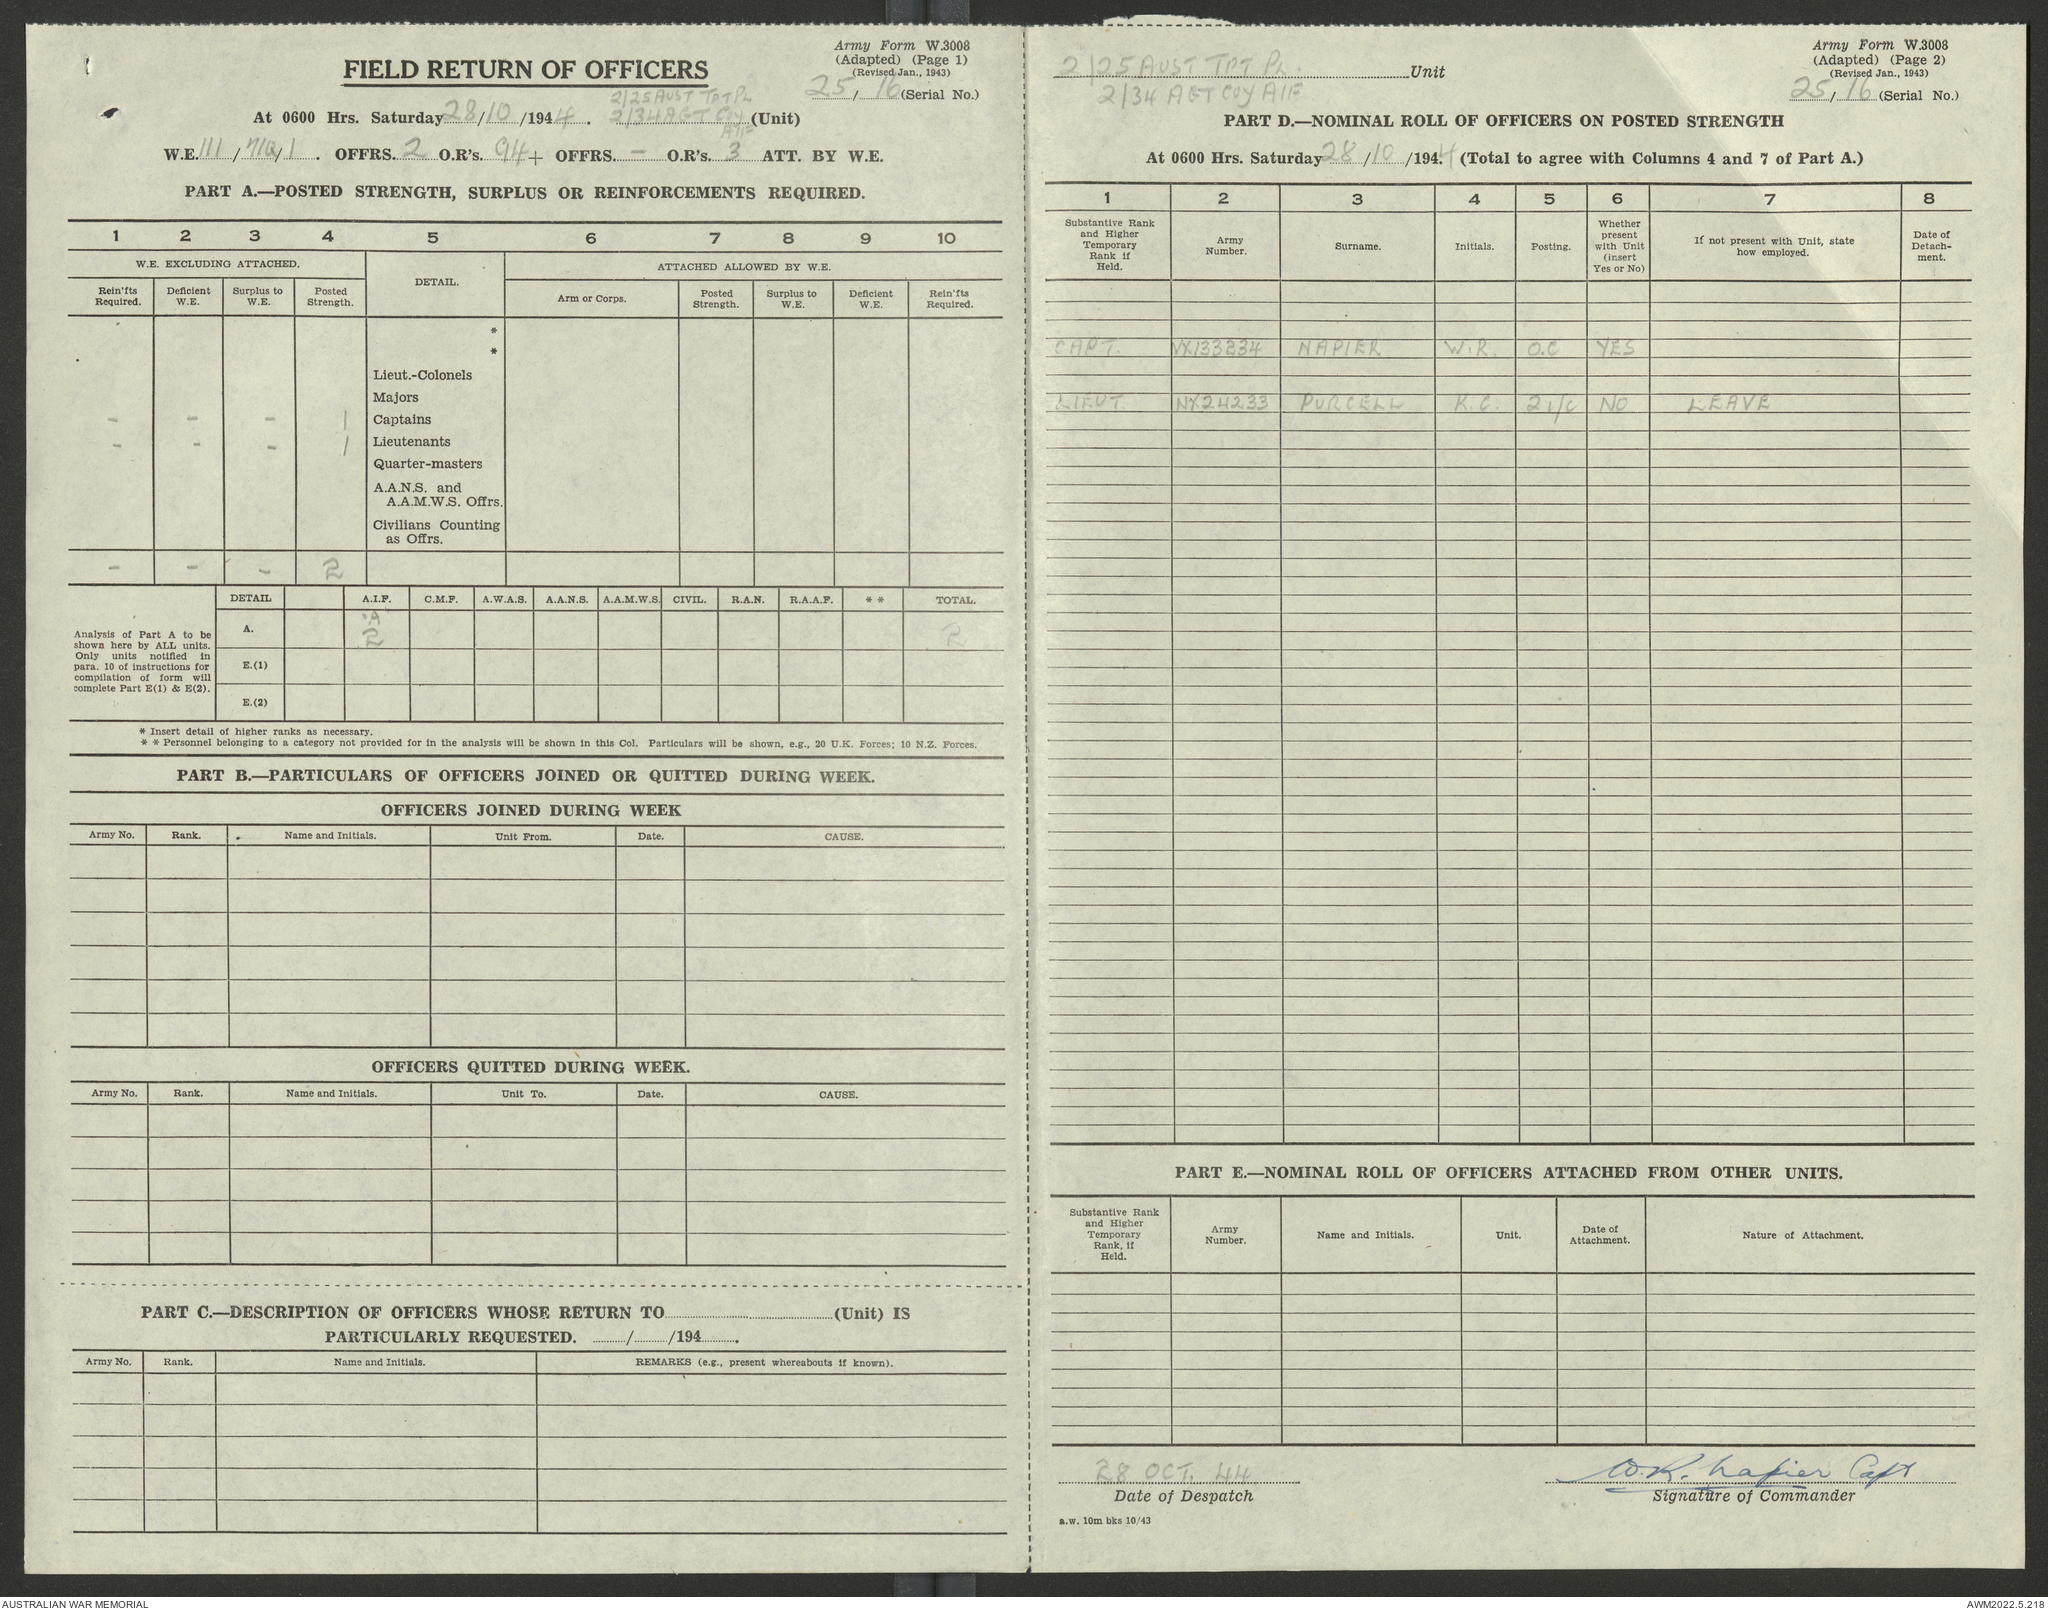 Army Form W.3008
(Adapted) (Page 1)
(Revised Jan., 1943)
25/16 (Serial No.)
FIELD RETURN OF OFFICERS
2/25 AUST TPT PL
At 0600 Hrs. Saturday 28/10/1944. 2/34 AGT COY (Unit)
AIF
W.E. 111/ /1. OFFRS. 2 O.R's. 94 + OFFRS. - O.R's. 3 ATT. BY W.E.
PART A.—POSTED STRENGTH, SURPLUS OR REINFORCEMENTS REQUIRED.
1 2 3 4 5 6 7 8 9 10
W.E. EXCLUDING ATTACHED. DETAIL. ATTACHED ALLOWED BY W.E.
Rein'fts Required. Deficient W.E. Surplus to W.E. Posted Strength. Arm or Corps. Posted Strength. Surplus to W.E. Deficient W.E. Rein'fts Required.
*
*
Lieut.-Colonels
Majors
- - - 1 Captains
- - - 1 Lieutenants
Quarter-masters
A.A.N.S. and
A.A.M.W.S. Offrs.
Civilians Counting
as Offrs.
- - - 2
DETAIL A.I.F. C.M.F. A.W.A.S. A.A.N.S. A.A.M.W.S. CIVIL. R.A.N. R.A.A.F. * * TOTAL.
Analysis of Part A to be
shown here by ALL units.
Only units notified in
para. 10 of instructions for
compilation of form will
complete Part E(1) & E(2).
'A'
A. 2 2
E.(1)
E.(2)
* Insert detail of higher ranks as necessary.
* * Personnel belonging to a category not provided for in the analysis will be shown in this Col. Particulars will be shown, e.g., 20 U.K. Forces; 10 N.Z. Forces.
PART B.—PARTICULARS OF OFFICERS JOINED OR QUITTED DURING WEEK.
OFFICERS JOINED DURING WEEK
Army No. Rank. Name and Initials. Unit From. Date. CAUSE.
OFFICERS QUITTED DURING WEEK.
Army No. Rank. Name and Initials. Unit To. Date. CAUSE.
PART C.—DESCRIPTION OF OFFICERS WHOSE RETURN TO (Unit) IS
PARTICULARLY REQUESTED. / /194 .
Army No. Rank. Name and Initials. REMARKS (e.g., present whereabouts if known).
Army Form W.3008
(Adapted) (Page 2)
(Revised Jan., 1943)
25/16 (Serial No.)
2/25 AUST TPT PL. Unit
2/34 AGT COY AIF
PART D.—NOMINAL ROLL OF OFFICERS ON POSTED STRENGTH
At 0600 Hrs. Saturday 28/10/194.4 (Total to agree with Columns 4 and 7 of Part A.)
1 2 3 4 5 6 7 8
Substantive Rank and Higher Temporary Rank if Held. Army Number. Surname. Initials. Posting. Whether present with Unit (insert Yes or No) If not present with Unit, state how employed. Date of Detach-ment.
CAPT. VX133234 NAPIER W.R. O.C YES
LIEUT. NX24233 PURCELL K.C. 2 i/c NO LEAVE
PART E.—NOMINAL ROLL OF OFFICERS ATTACHED FROM OTHER UNITS.
Substantive Rank and Higher Temporary Rank, if Held. Army Number. Name and Initials. Unit. Date of Attachment. Nature of Attachment.
28 OCT. 44 W.R. Napier Capt
Date of Despatch Signature of Commander
a.w. 10m bks 10/43
AUSTRALIAN WAR MEMORIAL AWM2022.5.218